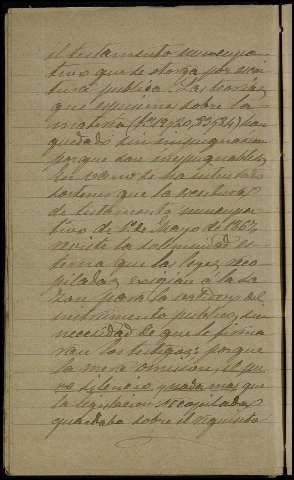 el testamento nuncupa-
tivo que se otorga por escri-
tura publica. Las teorías
que espusimos sobre la
materia (§ 19, 20, 3 y 24) han
quedado sin impugnacion
porque son inespugnables.
En vano se ha intentado
sostener que la escritura
de testamento nuncupa-
tivo de 1º de Mayo de 1867
reviste la solemnidad es-
terna que las leyes reco-
piladas exigian á la sa-
zon para la validez del
instrumento publico, sin
necesidad de que lo firma-
ran los testigos: porque
la mera omision, el pu-
ro silencio, y nada mas que
la legislacion recopilada
guardaba sobre el requisito